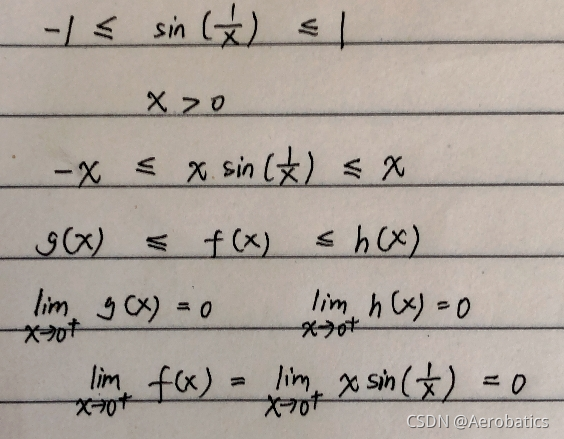 -1 ≤ sin(1/x) ≤ 1
x > 0
-x ≤ x sin(1/x) ≤ x
g(x) ≤ f(x) ≤ h(x)
lim x→0⁺ g(x) = 0 lim x→0⁺ h(x) = 0
lim x→0⁺ f(x) = lim x→0⁺ x sin(1/x) = 0
CSDN @Aerobatics